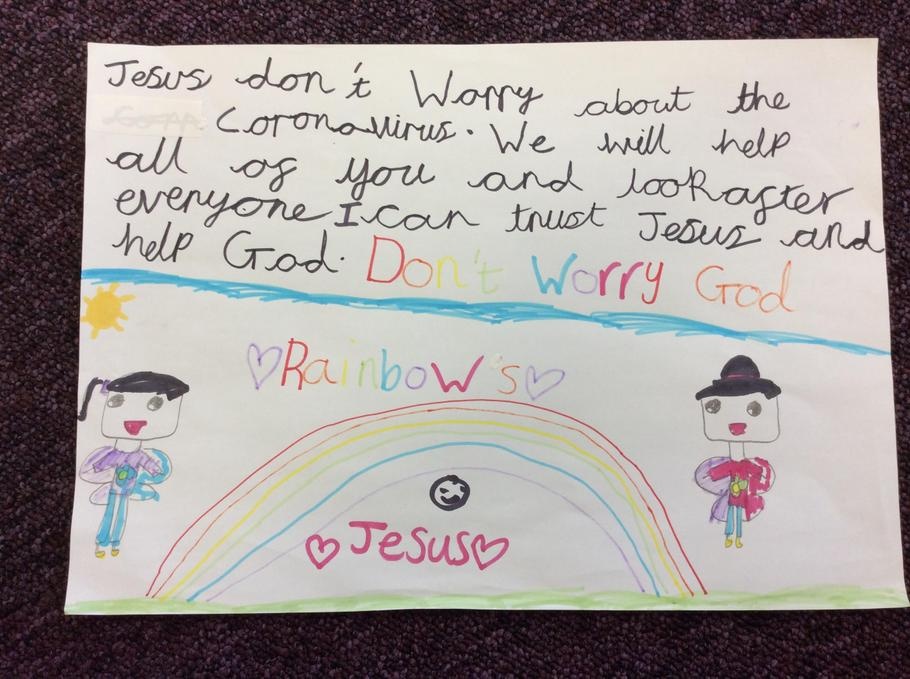 Jesus don't Worry about the
Coronavirus. We will help
all of you and look after
everyone I can trust Jesus and
help God. Don't Worry God
Rainbow's
Jesus